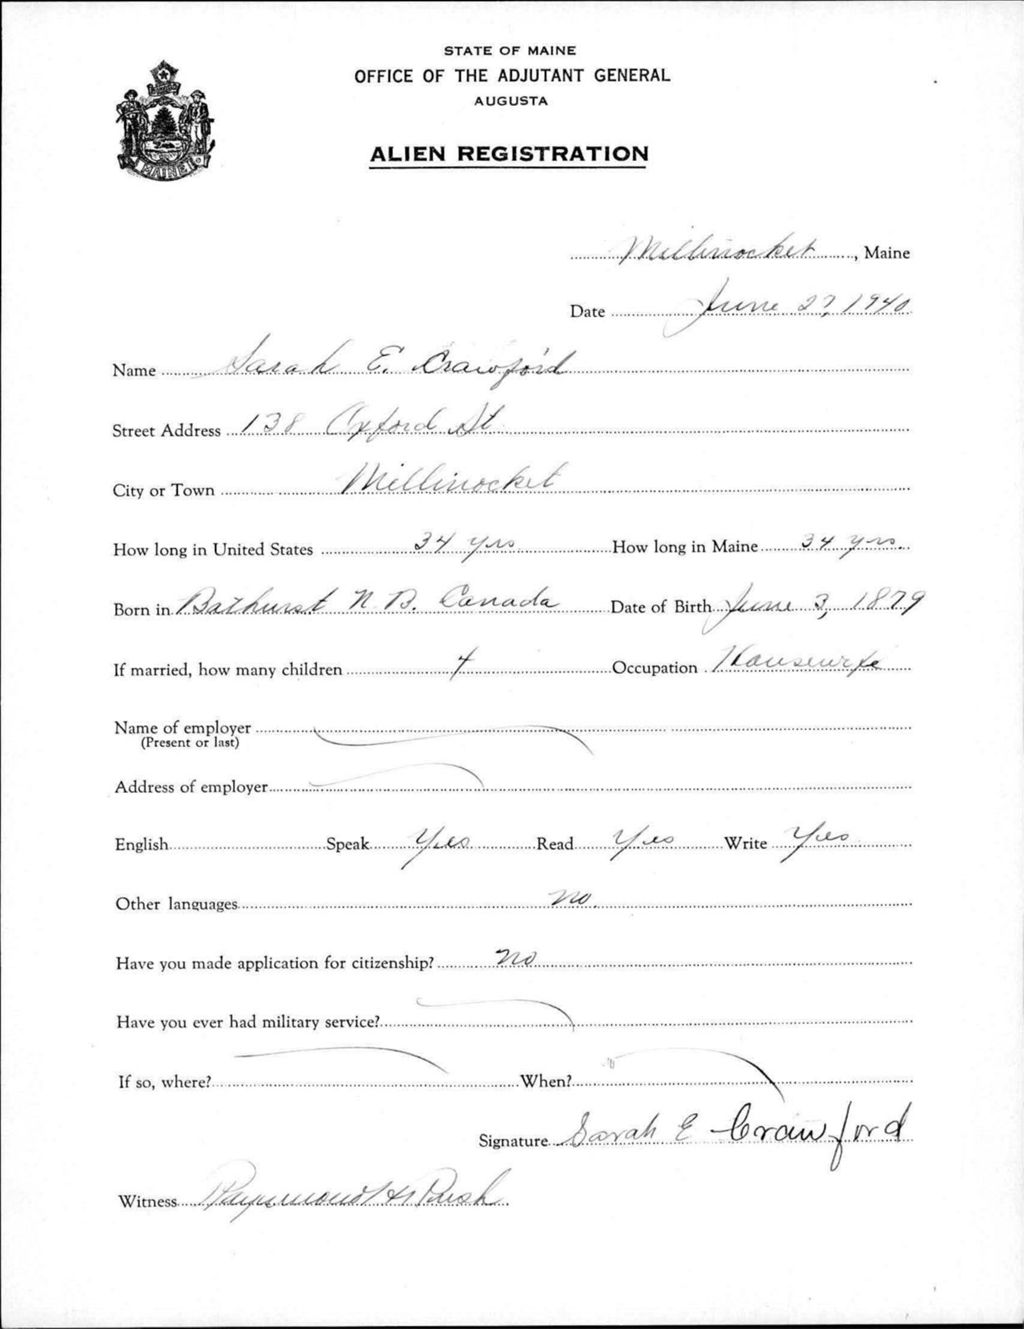 STATE OF MAINE
OFFICE OF THE ADJUTANT GENERAL
AUGUSTA
ALIEN REGISTRATION
MAINE
Millinocket, Maine
Date June 27, 1940
Name Sarah E. Crawford
Street Address 138 Oxford St
City or Town Millinocket
How long in United States 34 yrs How long in Maine 34 yrs.
Born in Bathurst N. B. Canada Date of Birth June 3, 1879
If married, how many children 4 Occupation Housewife
Name of employer
(Present or last)
Address of employer
English Speak Yes Read Yes Write Yes
Other languages No.
Have you made application for citizenship? No
Have you ever had military service?
If so, where? When?
Signature Sarah E Crawford
Witness Raymond H